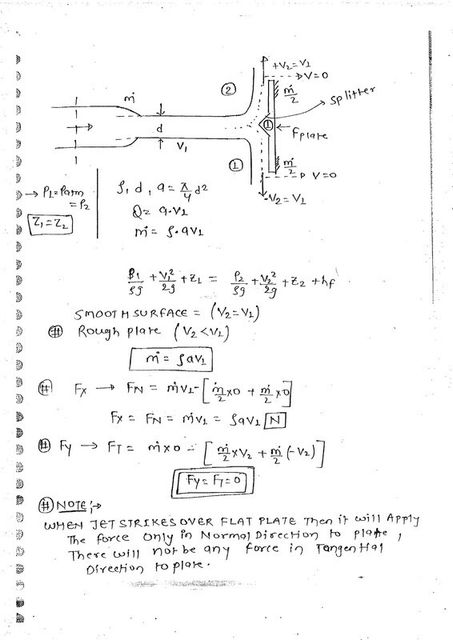 +V2=V1
V=0
②
ṁ
ṁ/2
splitter
d
①
Fplate
V1
①
ṁ/2
V=0
-V2=V1
→ P1=Patm
=P2
Z1=Z2
ρ, d, a=π/4 d²
Q= a.V1
ṁ= ρ.aV1
P1/ρg + V1²/2g + Z1 = P2/ρg + V2²/2g + Z2 + hf
SMOOTH SURFACE = (V2=V1)
# Rough plate (V2<V1)
ṁ= ρaV1
# Fx → FN = ṁV1-[ṁ/2 x0 + ṁ/2 x0]
Fx = FN = ṁV1 = ρaV1 N
# Fy → FT = ṁx0 - [ṁ/2 xV2 + ṁ/2 (-V2)]
Fy=FT=0
# NOTE:→
WHEN JET STRIKES OVER FLAT PLATE Then it will Apply
The force only in Normal Direction to plate,
There will not be any force in Tangential
Direction to plate.